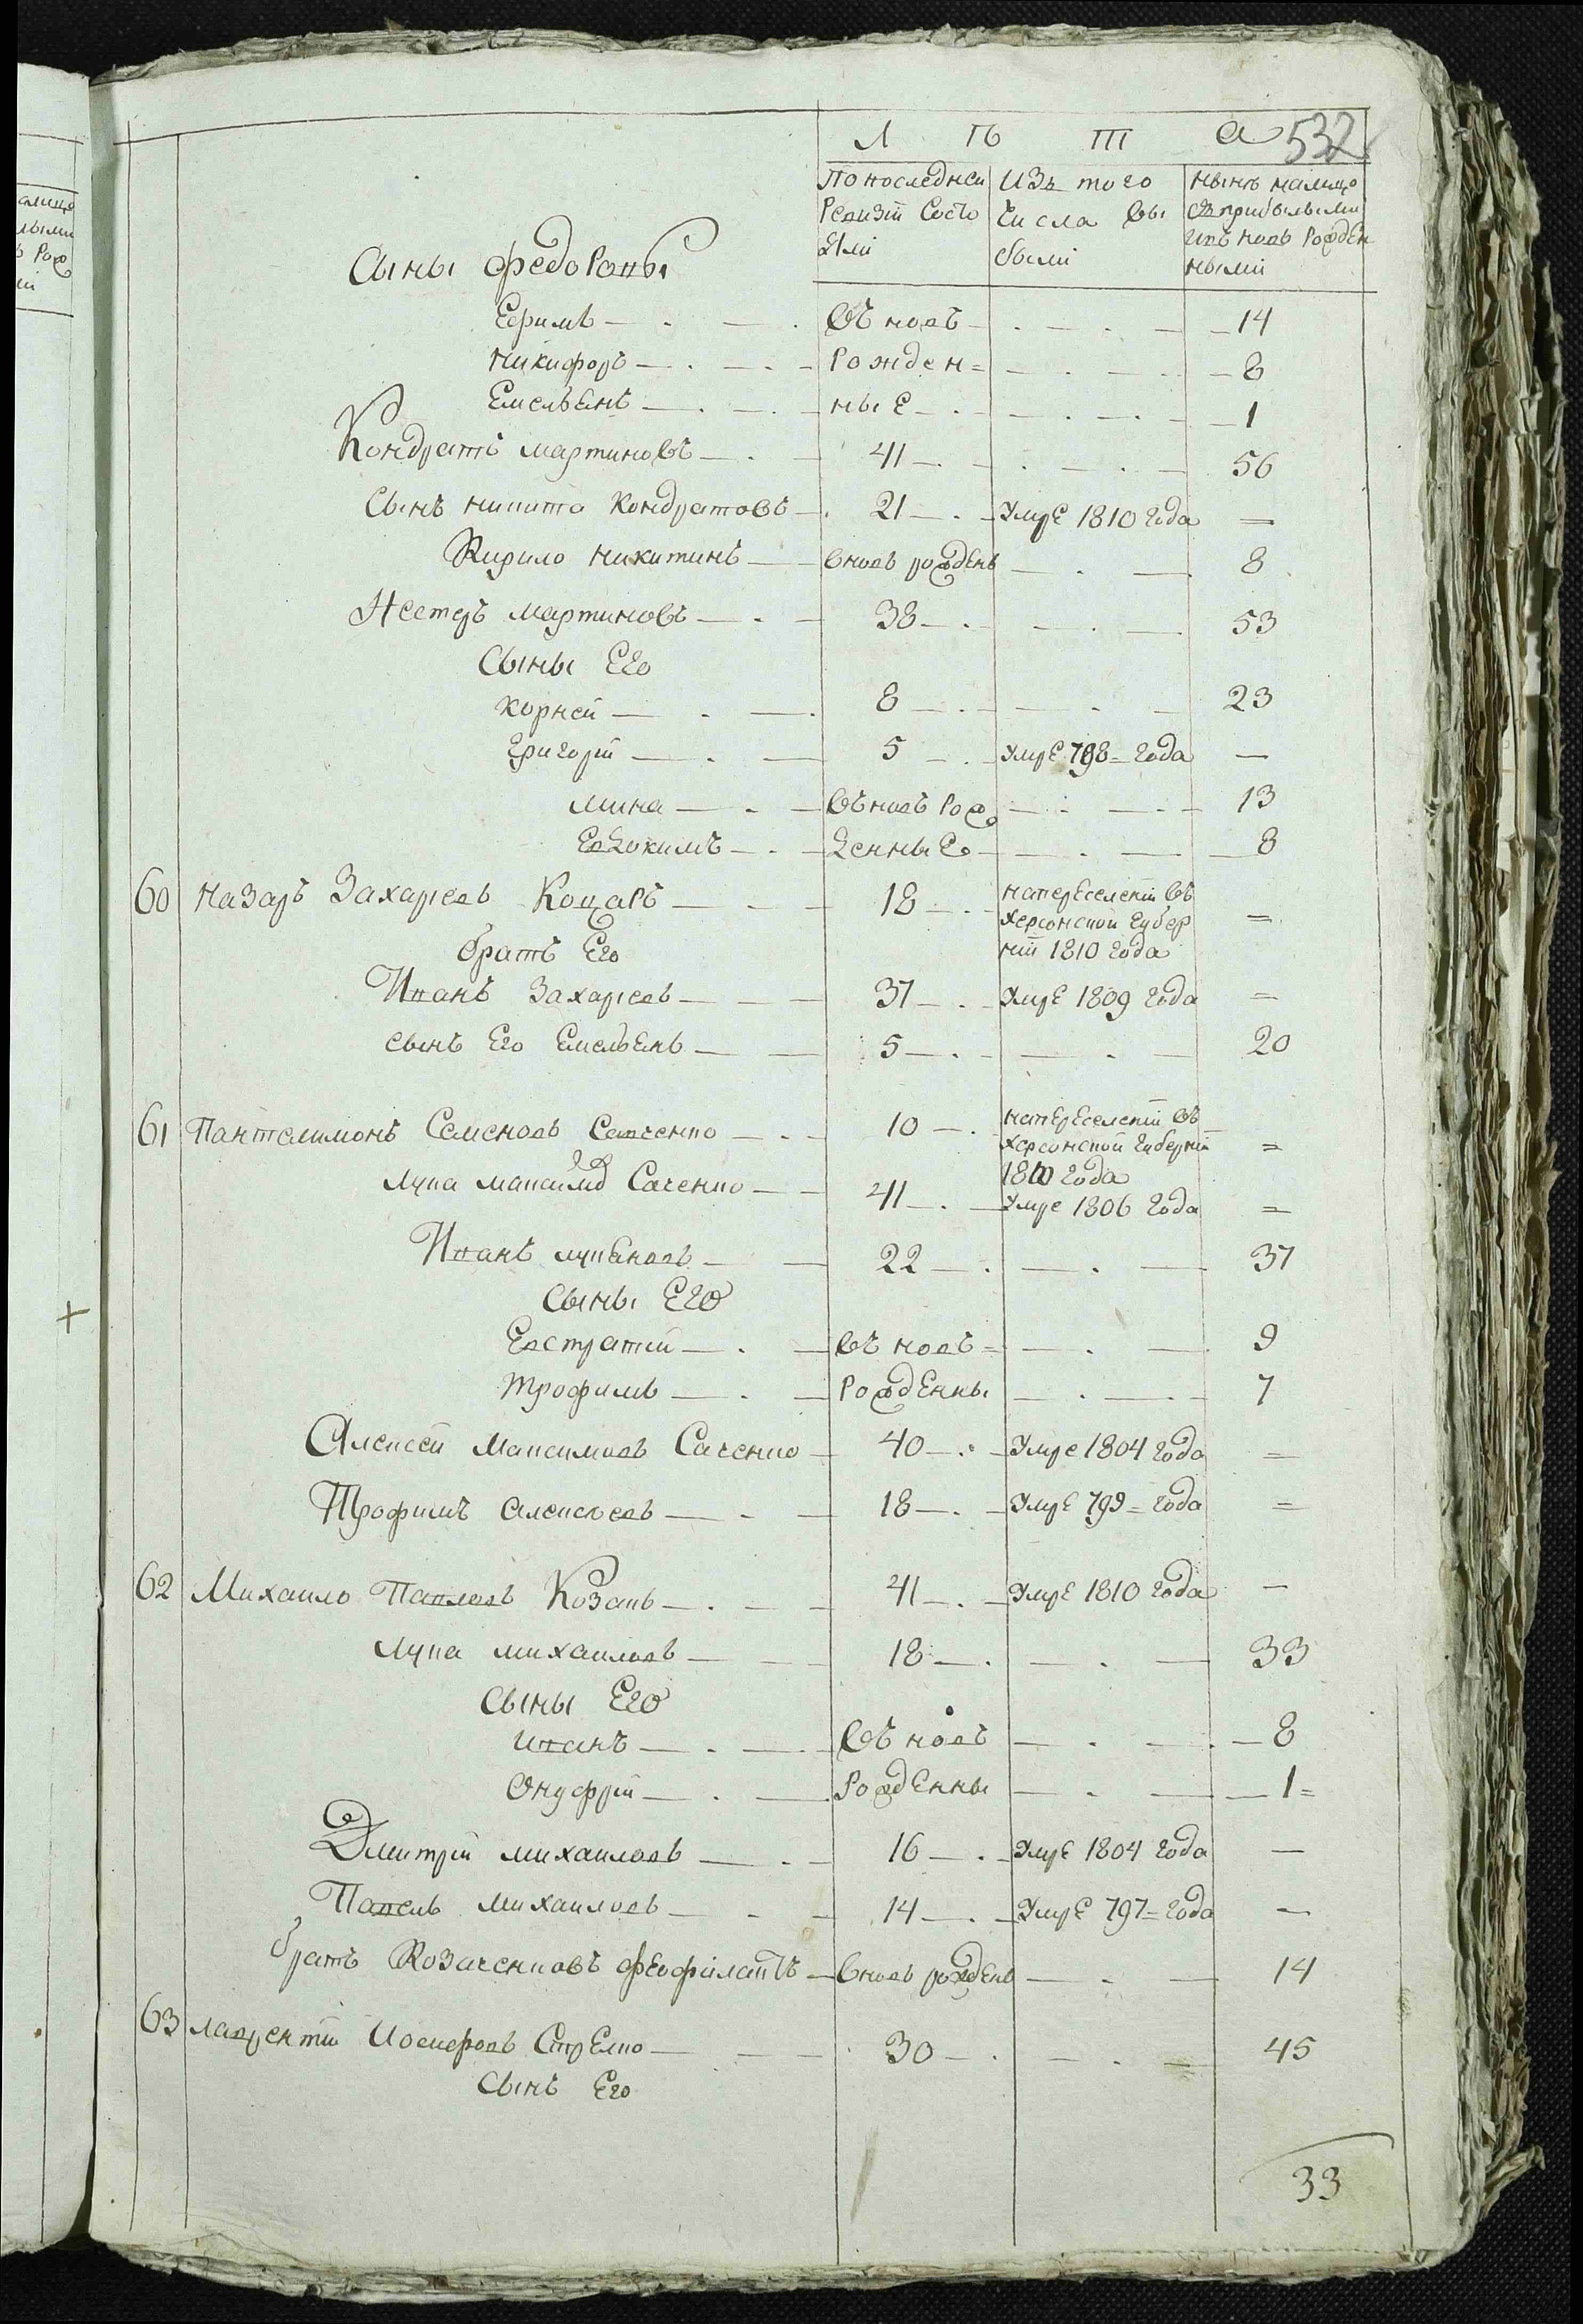 Л Ѣ Т А 532
По последней Изъ того нынѣ налицо
Ревизїи Состо числа вы съ прибылыми
Яли были и въ новь Рожден
ными
Сыны Федоровы
Ефимъ — Въ новь — 14
Никифоръ — Рожден= — 8
Емельянъ — ные — 1
Кондратъ Мартиновъ — 41 — 56
Сынъ Никита Кондратовъ — 21 — Умре 1810 Года —
Кирило Никитинъ — вновь рожденъ — 8
Нестеръ Мартиновъ — 38 — 53
Сыны Его
Корней — 8 — 23
Григорїй — 5 — Умре 798 = Года —
Мина — Въ новь Рож — 13
Евдокимъ — Денные — 8
60 Назаръ Захарїевъ Коцаръ — 18 — на переселенїи Въ
Херсонской Губер =
братъ Его нїи 1810 Года
Иванъ Захарїевъ — 37 — Умре 1809 Года =
сынъ Его Емельянъ — 5 — 20
61 Пантелимонъ Семеновъ Савченко — 10 — на переселенїи Въ
Херсонской Губернїи =
1810 Года
Лука Максимов Саченко — 41 — Умре 1806 Года =
Иванъ Лукяновъ — 22 — 37
Сыны Его
Евстратїй — Въ новь = — 9
Трофимъ — Рожденны — 7
Алексей Максимовъ Саченко — 40 — Умре 1804 Года =
Трофимъ Алексѣевъ — 18 — Умре 799 = Года =
62 Михаило Павловъ Козакъ — 41 — Умре 1810 Года —
Лука Михаиловъ — 18 — 33
Сыны Его
Иванъ — Въ новь — 8
Онуфрїй — Рожденны — 1 =
Дмитрїй Михаиловъ — 16 — Умре 1804 Года —
Павелъ Михаиловъ — 14 — Умре 797 = Года —
братъ Козаченковъ Феофилактъ — вновь рожденъ — 14
63 Лаврентїй Иосифовъ — 30 — 45
Сынъ Его
33